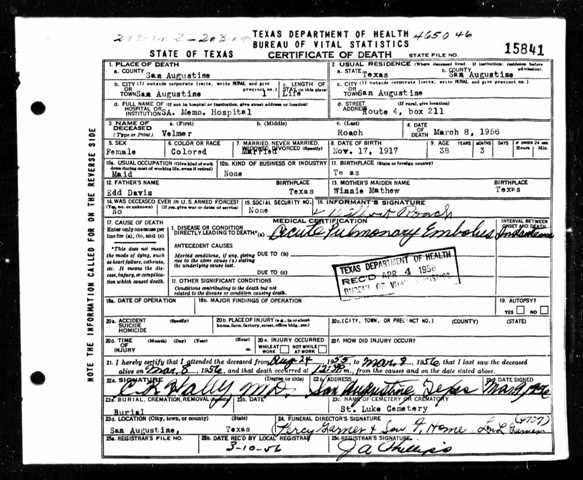 TEXAS DEPARTMENT OF HEALTH 465046
BUREAU OF VITAL STATISTICS
STATE OF TEXAS CERTIFICATE OF DEATH STATE FILE NO. 15841
1. PLACE OF DEATH
a. COUNTY San Augustine
2. USUAL RESIDENCE (Where deceased lived. If institution: residence before admission)
a. STATE Texas b. COUNTY San Augustine
b. CITY (If outside corporate limits, write RURAL and give precinct no.)
OR TOWN San Augustine
c. LENGTH OF STAY (in this place) Life
c. CITY (If outside corporate limits, write RURAL and give precinct no.)
OR TOWN San Augustine
d. FULL NAME OF (If not in hospital or institution, give street address or location)
HOSPITAL OR INSTITUTION SA. Memo. Hospital
d. STREET ADDRESS (If rural, give location)
Route 4, box 211
3. NAME OF DECEASED (Type or Print)
a. (First) Velmer
b. (Middle)
c. (Last) Roach
4. DATE OF DEATH March 8, 1956
5. SEX Female
6. COLOR OR RACE Colored
7. MARRIED, NEVER MARRIED, WIDOWED, DIVORCED (Specify) Married
8. DATE OF BIRTH Nov. 17, 1917
9. AGE YEARS 38 MONTHS 3 DAYS
10a. USUAL OCCUPATION (Give kind of work done during most of working life, even if retired) Maid
10b. KIND OF BUSINESS OR INDUSTRY None
11. BIRTHPLACE (State or foreign country)
12. FATHER'S NAME Edd Davis Texas
13. MOTHER'S MAIDEN NAME Winnie Mathew Texas
14. WAS DECEASED EVER IN U.S. ARMED FORCES?
(Yes, no, or unknown) (If yes, give war or dates of service)
No
15. SOCIAL SECURITY NO. None
16. INFORMANT'S SIGNATURE
17. CAUSE OF DEATH
Enter only one cause per line for (a), (b), and (c)
MEDICAL CERTIFICATION
INTERVAL BETWEEN ONSET AND DEATH
I. DISEASE OR CONDITION DIRECTLY LEADING TO DEATH* (a) Acute Pulmonary Embolus
*This does not mean the mode of dying, such as heart failure, asthenia, etc. It means the disease, injury, or complication which caused death.
ANTECEDENT CAUSES
Morbid conditions, if any, giving rise to the above cause (a) stating the underlying cause last.
DUE TO (b)
DUE TO (c)
II. OTHER SIGNIFICANT CONDITIONS
Conditions contributing to the death but not related to the disease or condition causing death.
TEXAS DEPARTMENT OF HEALTH
REC'D APR 4 1956
BUREAU OF VITAL STATISTICS
18a. DATE OF OPERATION
18b. MAJOR FINDINGS OF OPERATION
19. AUTOPSY? YES NO
20a. ACCIDENT SUICIDE HOMICIDE (Specify)
20b. PLACE OF INJURY (e.g., in or about home, farm, factory, street, office bldg., etc.)
20c. (CITY, TOWN, OR PRECINCT NO.) (COUNTY) (STATE)
20d. TIME OF INJURY (Month) (Day) (Year) (Hour)
20e. INJURY OCCURRED WHILE AT WORK NOT WHILE AT WORK
20f. HOW DID INJURY OCCUR?
21. I hereby certify that I attended the deceased from Aug 24 to Mar 8, 1956, that I last saw the deceased
alive on Mar, 8 1956, and that death occurred at from the causes and on the date stated above.
22a. SIGNATURE (Degree or title) M.D.
22b. ADDRESS San Augustine Texas
22c. DATE SIGNED
23a. BURIAL, CREMATION, REMOVAL (Specify) Burial
23b. DATE
23c. NAME OF CEMETERY OR CREMATORY St. Luke Cemetery
23d. LOCATION (City, town, or county) (State)
San Augustine, Texas
24. FUNERAL DIRECTOR'S SIGNATURE
Percy Garner & Son F. Home
25a. REGISTRAR'S FILE NO.
25b. DATE REC'D BY LOCAL REGISTRAR 3-10-56
25c. REGISTRAR'S SIGNATURE
J A Phillips
NOTE THE INFORMATION CALLED FOR ON THE REVERSE SIDE